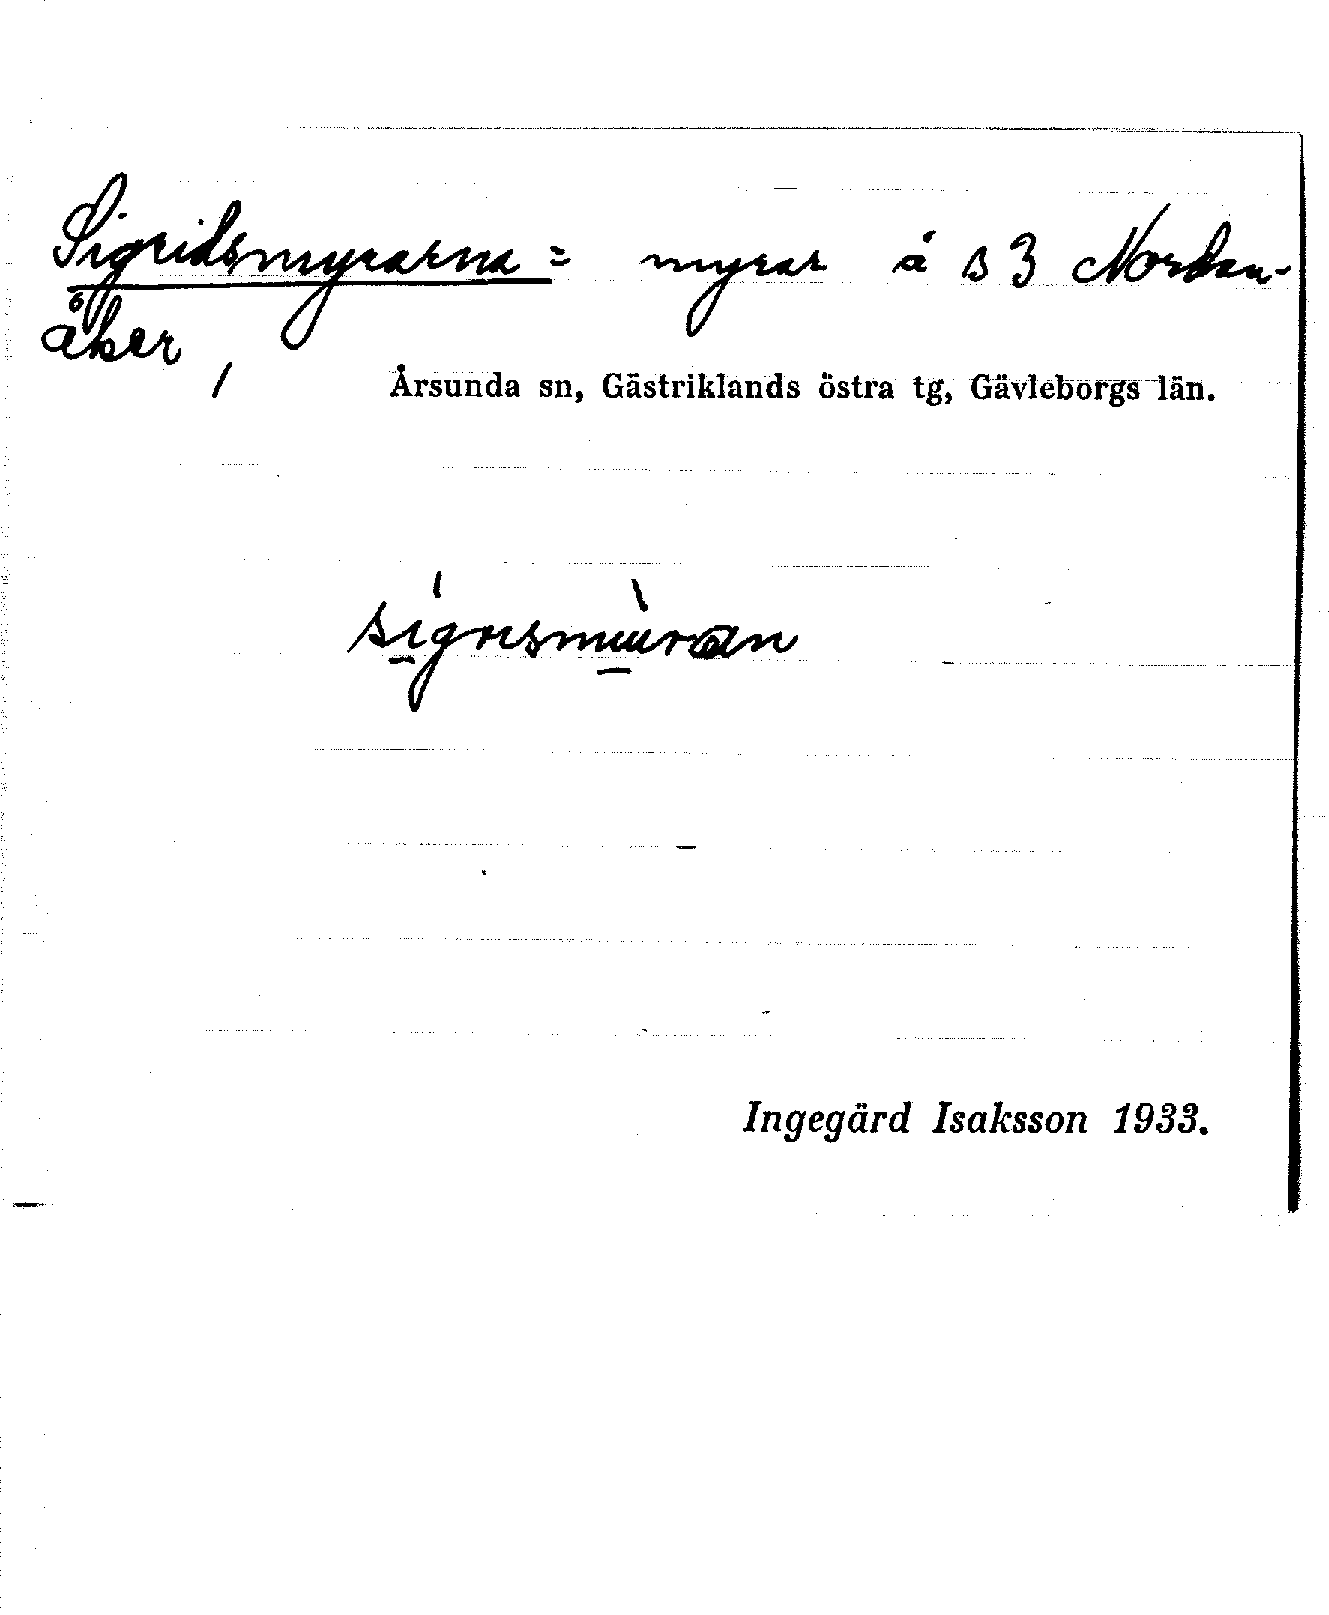 Sigridsmyrarna = myrar å s 3 Nordan-
åker /
Årsunda sn, Gästriklands östra tg, Gävleborgs län.
Ingegärd Isaksson 1933.